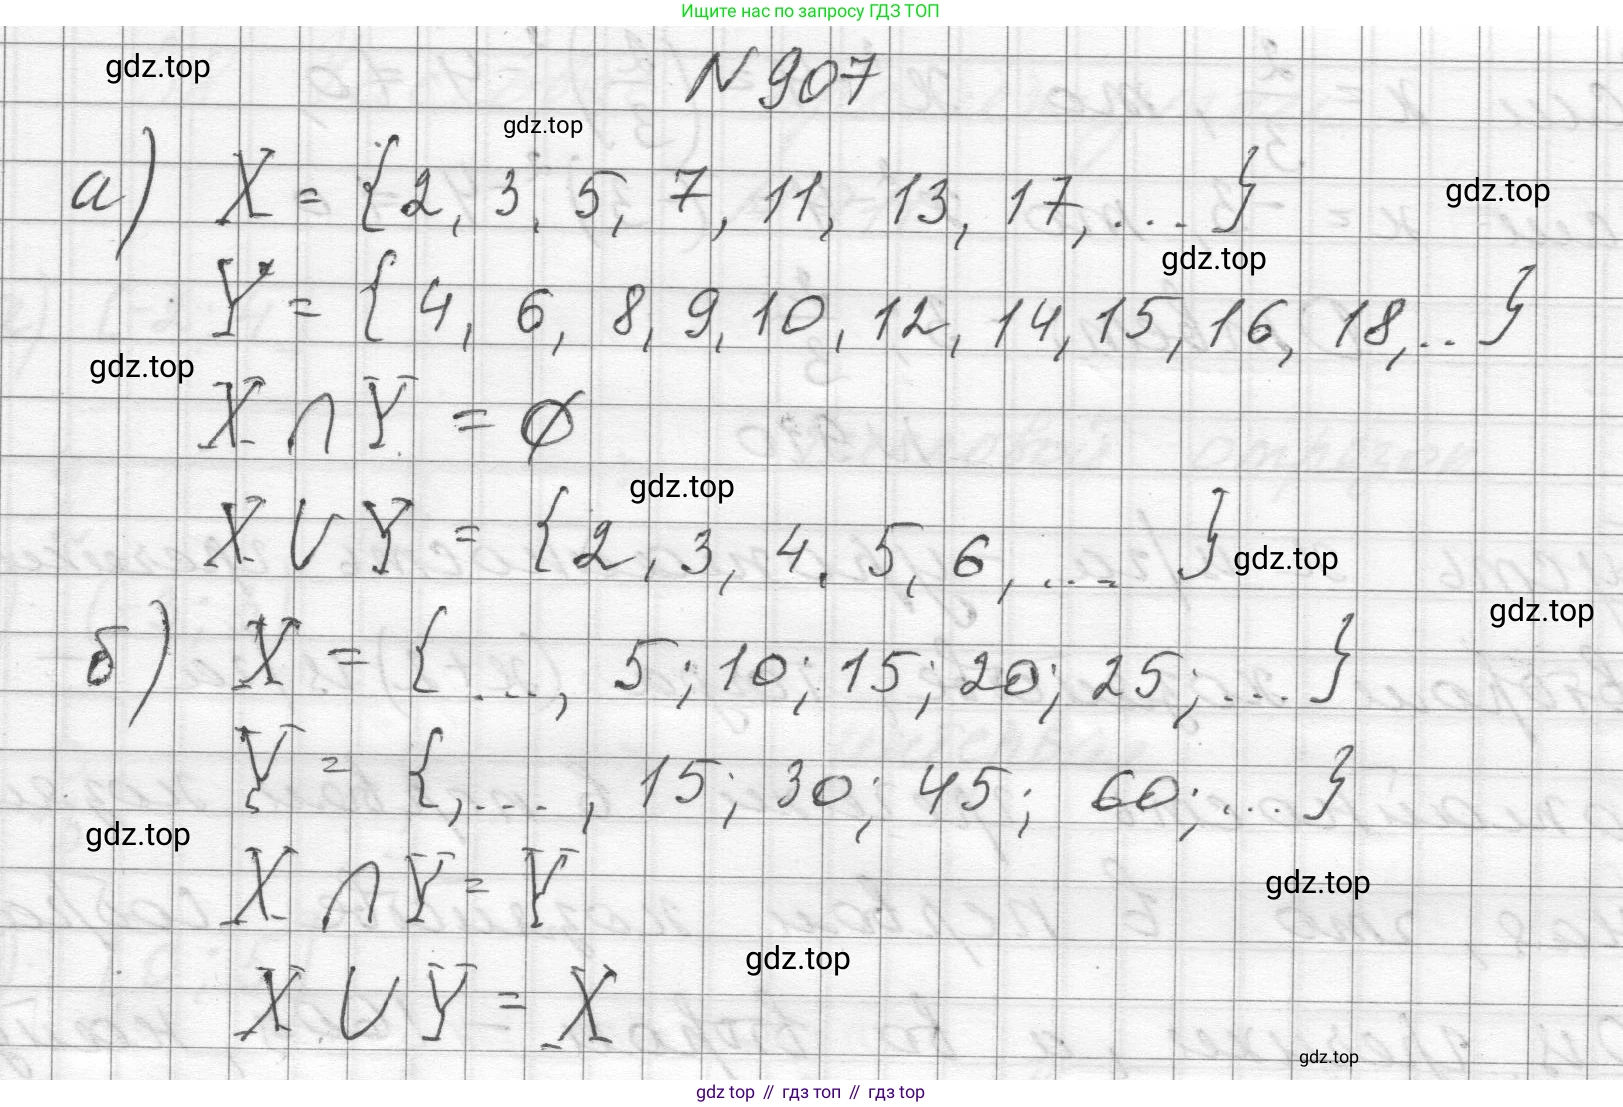 Ищите нас по запросу ГДЗ ТОП
gdz.top
N 907
gdz.top
а) X = {2, 3, 5, 7, 11, 13, 17, ... }
gdz.top
gdz.top
Y = { 4, 6, 8, 9, 10, 12, 14, 15, 16, 18, .. }
gdz.top
X ∩ Y = ∅
gdz.top
X ∪ Y = {2, 3, 4, 5, 6, ... }
gdz.top
gdz.top
б) X = { ..., 5; 10; 15; 20; 25; ... }
Y = {, ...., 15; 30; 45; 60; ... }
gdz.top
X ∩ Y = Y
gdz.top
gdz.top
X ∪ Y = X
gdz.top
gdz top // гдз топ // гдз top